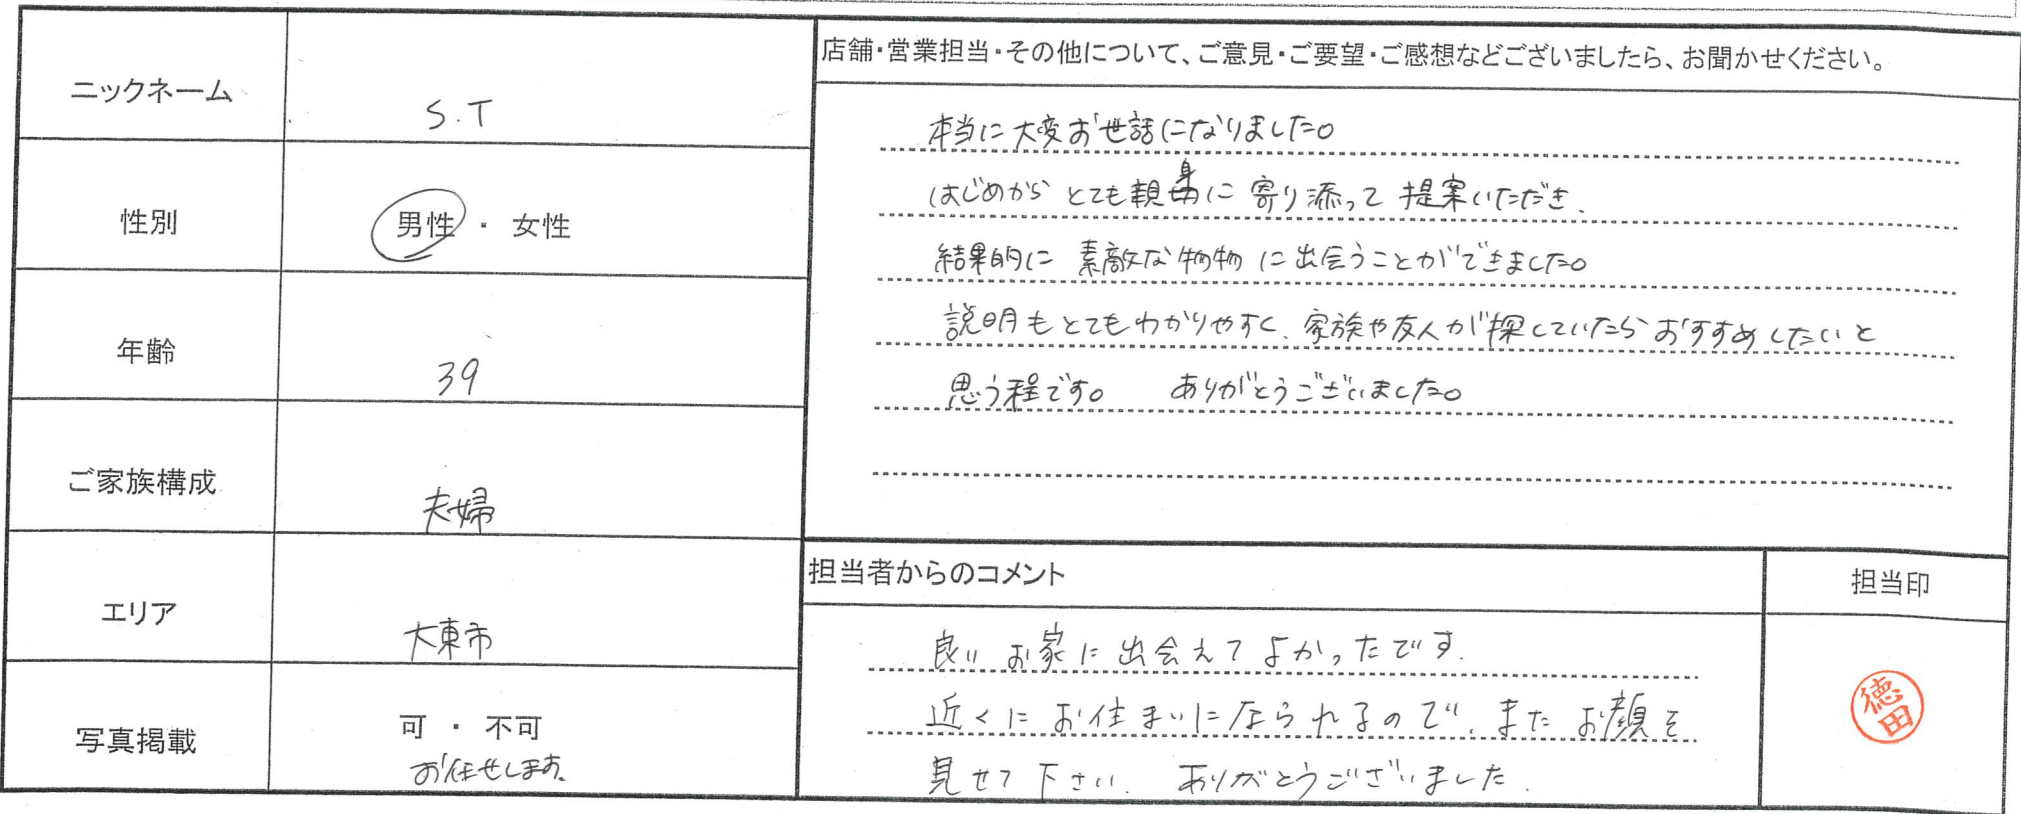 ニックネーム
S.T
性別
男性 ・ 女性
年齢
39
ご家族構成
夫婦
エリア
大東市
写真掲載
可 ・ 不可
お任せします。
店舗・営業担当・その他について、ご意見・ご要望・ご感想などございましたら、お聞かせください。
本当に大変お世話になりました。
はじめから とても親身に 寄り添って 提案いただき、
結果的に 素敵な物物に出会うことができました。
説明もとてもわかりやすく、家族や友人が探していたらおすすめしたいと
思う程です。 ありがとうございました。
担当者からのコメント
良い お家に出会えてよかったです.
近くにお住まいになられるので、またお顔を
見せて下さい. ありがとうございました.
担当印
徳田